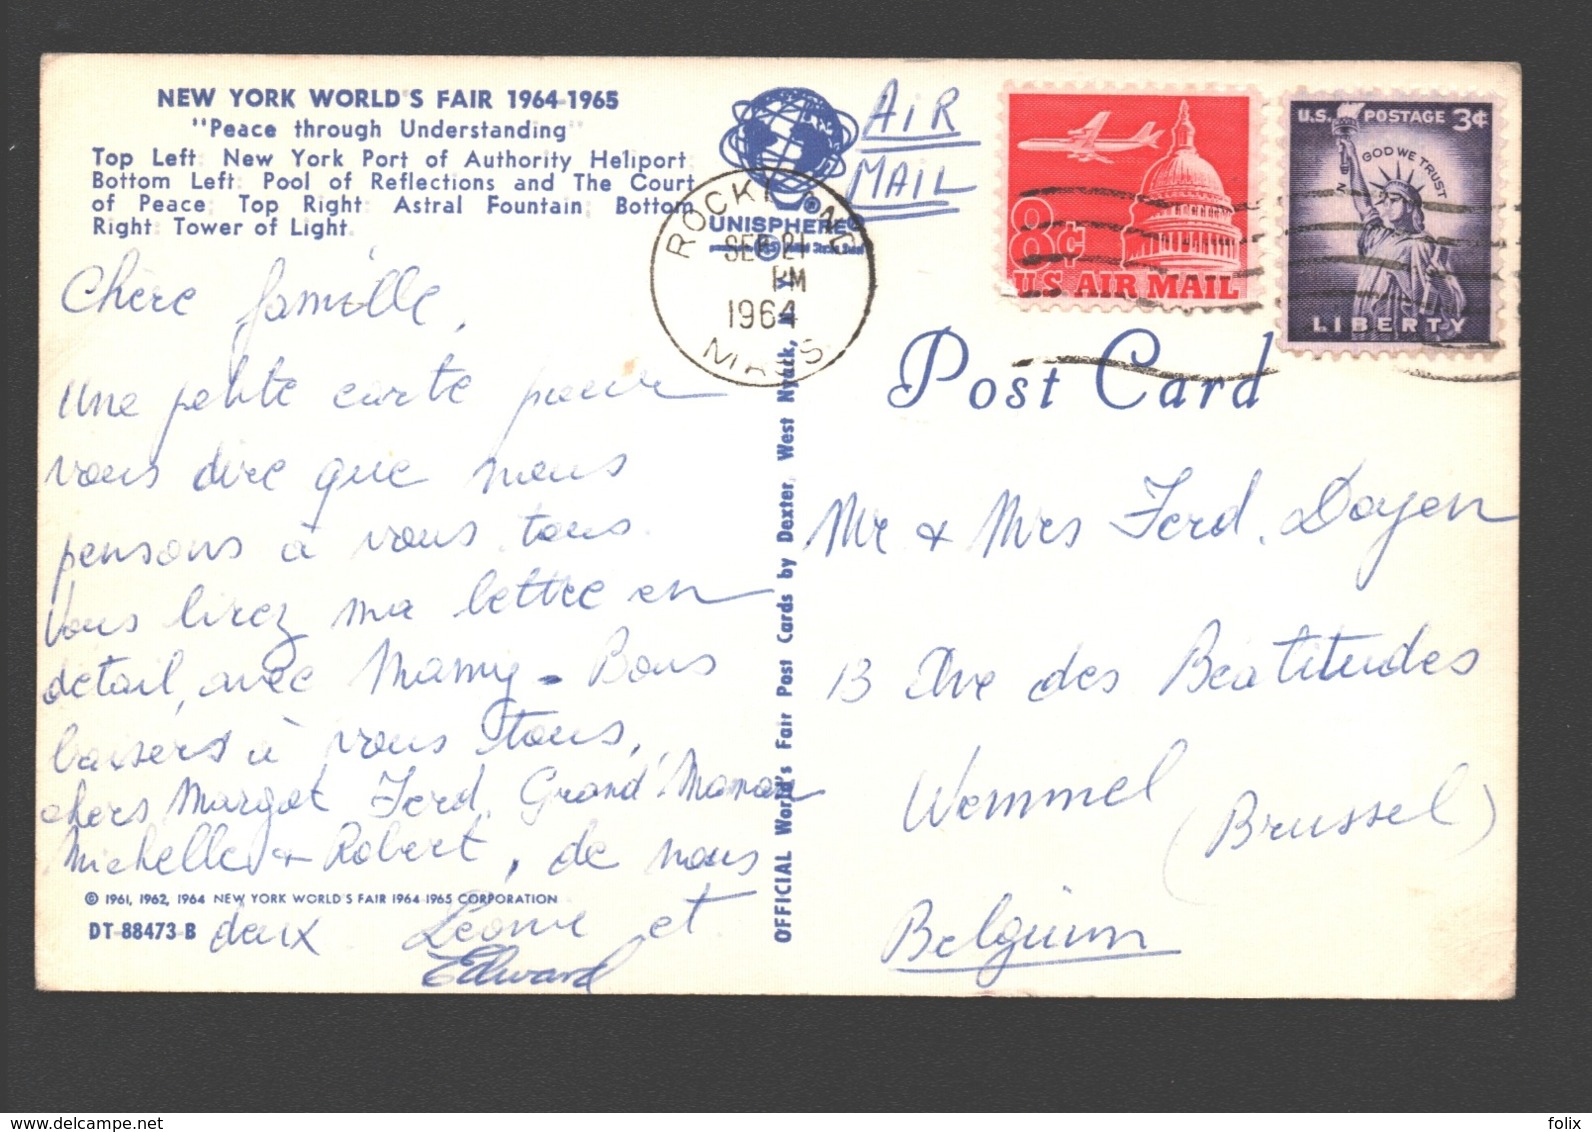 NEW YORK WORLD'S FAIR 1964-1965
"Peace through Understanding"
Top Left: New York Port of Authority Heliport;
Bottom Left: Pool of Reflections and The Court
of Peace; Top Right: Astral Fountain; Bottom
Right: Tower of Light.
UNISPHERE®
AIR
MAIL
SEP 21
PM
1964
MASS
8¢
US AIR MAIL
U.S. POSTAGE 3¢
IN GOD WE TRUST
LIBERTY
Post Card
Chère famille,
Une petite carte pour
vous dire que nous
pensons à vous tous.
Vous lirez ma lettre en
détail, avec Mamy - Bons
baisers à vous tous,
chers Margot Ferd, Grand'Maman
Michelle & Robert, de nous
deux Léonie et
Edward
© 1961, 1962, 1964 NEW YORK WORLD'S FAIR 1964-1965 CORPORATION
DT-88473-B
OFFICIAL World's Fair Post Cards by Dexter, West Nyack, N.Y.
Mr & Mrs Ferd. Doyen
13 Ave des Béatitudes
Wemmel
(Brussel)
Belgium
felix